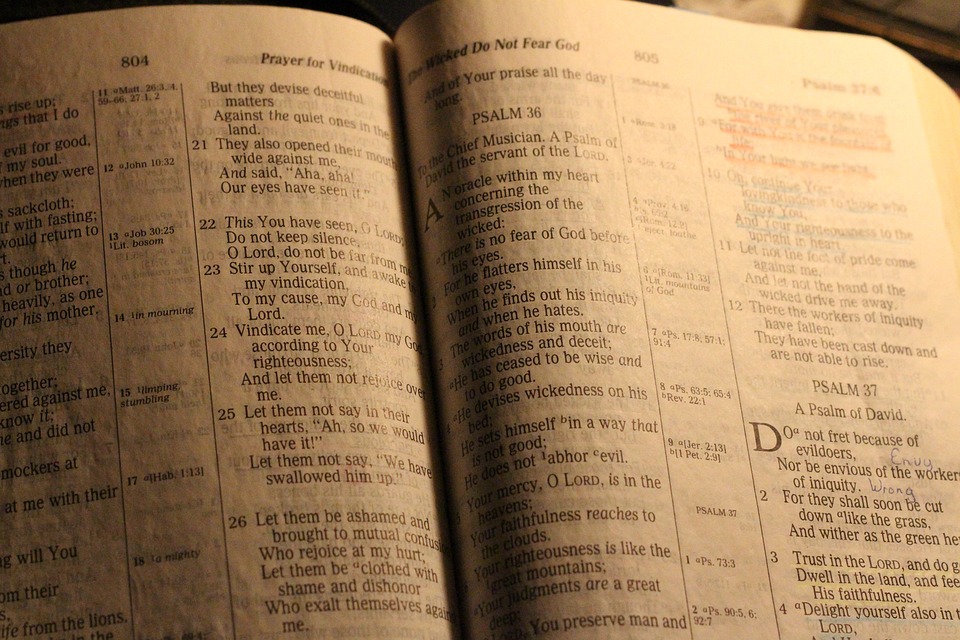 804
Prayer for Vindication
rise up;
ngs that I do
evil for good,
f my soul.
when they were
sackcloth;
lf with fasting;
would return to
rt.
s though he
nd or brother;
heavily, as one
for his mother.
versity they
ogether;
ered against me,
know it;
ne and did not
mockers at
at me with their
ng will You
om their
s,
ife from the lions.
11 aMatt. 26:3, 4,
59–66; 27:1, 2
12 aJohn 10:32
13 aJob 30:25
1Lit. bosom
14 1in mourning
15 1limping,
stumbling
17 a[Hab. 1:13]
18 1a mighty
But they devise deceitful
matters
Against the quiet ones in the
land.
21 They also opened their mouth
wide against me,
And said, “Aha, aha!
Our eyes have seen it.”
22 This You have seen, O LORD;
Do not keep silence.
O Lord, do not be far from me.
23 Stir up Yourself, and awake to
my vindication,
To my cause, my God and my
Lord.
24 Vindicate me, O LORD my God,
according to Your
righteousness;
And let them not rejoice over
me.
25 Let them not say in their
hearts, “Ah, so we would
have it!”
Let them not say, “We have
swallowed him up.”
26 Let them be ashamed and
brought to mutual confusion
Who rejoice at my hurt;
Let them be aclothed with
shame and dishonor
Who exalt themselves against
me.
The Wicked Do Not Fear God
805
Psalm 37:4
And of Your praise all the day
long.
PSALM 36
To the Chief Musician. A Psalm of
David the servant of the LORD.
AN oracle within my heart
concerning the
transgression of the
wicked:
aThere is no fear of God before
his eyes.
2 For he flatters himself in his
own eyes,
When he finds out his iniquity
and when he hates.
3 The words of his mouth are
wickedness and deceit;
aHe has ceased to be wise and
to do good.
4 aHe devises wickedness on his
bed;
He sets himself bin a way that
is not good;
He does not 1abhor cevil.
5 Your mercy, O LORD, is in the
heavens;
Your faithfulness reaches to
the clouds.
6 Your righteousness is like the
1great mountains;
aYour judgments are a great
deep;
O LORD, You preserve man and
PSALM 36
1 aRom. 3:18
3 aJer. 4:22
4 aProv. 4:16
6 a[Rom. 11:33]
1Lit. mountains
of God
7 aPs. 17:8; 57:1;
91:4
8 aPs. 63:5; 65:4
bRev. 22:1
9 a[Jer. 2:13]
b[1 Pet. 2:9]
PSALM 37
1 aPs. 73:3
2 aPs. 90:5, 6;
92:7
9 aFor with You is the fountain of
life;
bIn Your light we see light.
10 Oh, continue Your
lovingkindness to those who
know You,
And Your righteousness to the
upright in heart.
11 Let not the foot of pride come
against me,
And let not the hand of the
wicked drive me away.
12 There the workers of iniquity
have fallen;
They have been cast down and
are not able to rise.
PSALM 37
A Psalm of David.
DOa not fret because of
evildoers,
Envy
Nor be envious of the workers
of iniquity.
Wrong
2 For they shall soon be cut
down alike the grass,
And wither as the green he
3 Trust in the LORD, and do g
Dwell in the land, and fee
His faithfulness.
4 aDelight yourself also in t
LORD,